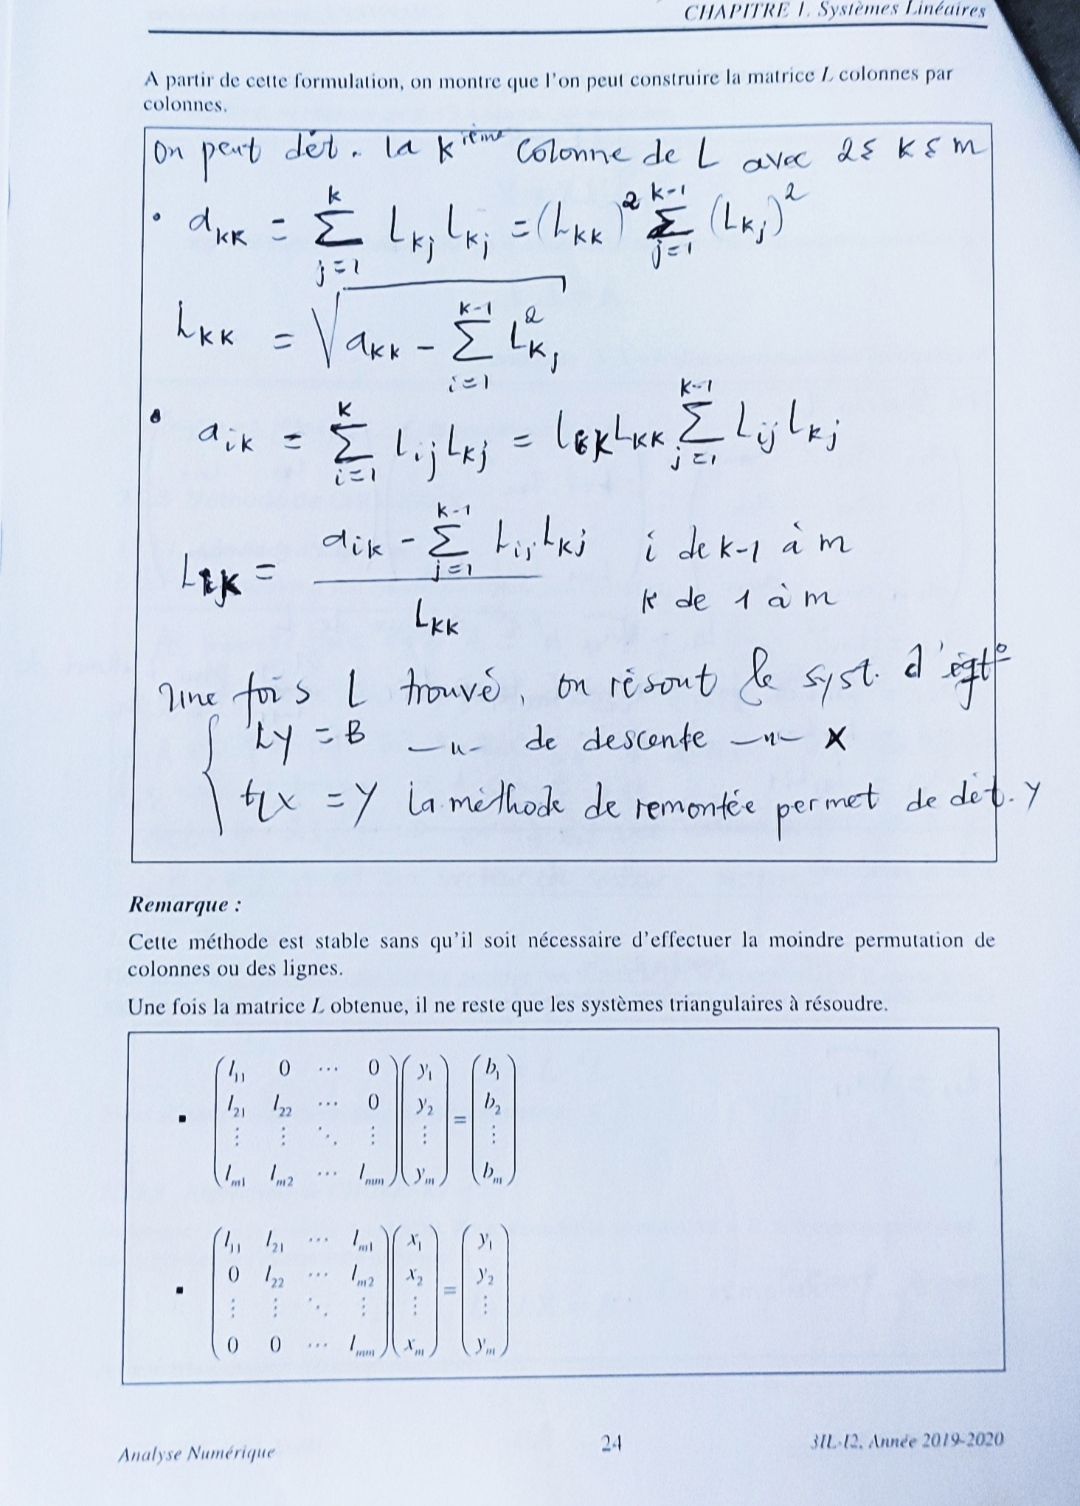 CHAPITRE 1. Systèmes Linéaires
A partir de cette formulation, on montre que l'on peut construire la matrice L colonnes par
colonnes.
On peut dét. la k^ième colonne de L avec 2 ≤ K ≤ m
• a_KK = ∑_{j=1}^{k} L_kj L_kj = (L_KK)^2 ∑_{j=1}^{k-1} (L_kj)^2
L_KK = √(a_KK - ∑_{i=1}^{k-1} L_Kj^2)
• a_ik = ∑_{i=1}^{K} L_ij L_kj = L_iK L_KK ∑_{j=1}^{k-1} L_ij L_kj
L_iK = (a_ik - ∑_{j=1}^{k-1} L_ij L_kj) / L_KK i de k-1 à m
k de 1 à m
Une fois L trouvé, on résout le syst. d'éqt°
LY = B —"— de descente —"— X
tLX = Y la méthode de remontée permet de dét. Y
Remarque :
Cette méthode est stable sans qu'il soit nécessaire d'effectuer la moindre permutation de
colonnes ou des lignes.
Une fois la matrice L obtenue, il ne reste que les systèmes triangulaires à résoudre.
l11 0 ⋯ 0 y1 b1
l21 l22 ⋯ 0 y2 = b2
⋮ ⋮ ⋱ ⋮ ⋮ ⋮
lm1 lm2 ⋯ lmm ym bm
l11 l21 ⋯ lm1 x1 y1
0 l22 ⋯ lm2 x2 = y2
⋮ ⋮ ⋱ ⋮ ⋮ ⋮
0 0 ⋯ lmm xm ym
Analyse Numérique 24 3IL-I2. Année 2019-2020